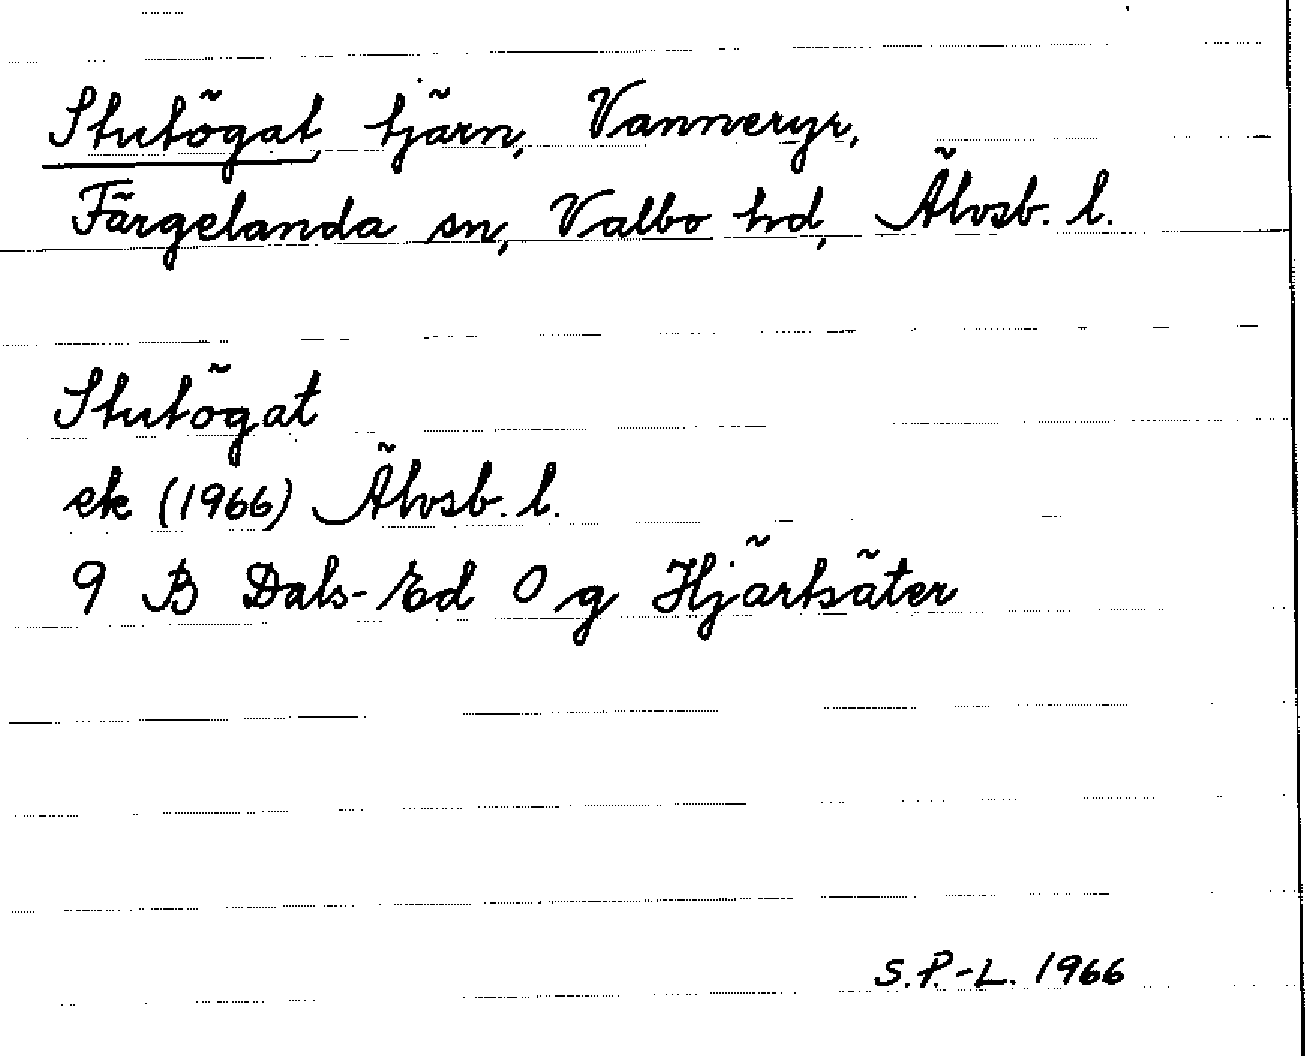 Stutögat, tjärn, Vanneryr,
Färgelanda sn, Valbo hd, Älvsb. l.
Stutögat
ek (1966) Älvsb. l.
9 B Dals-Ed 0 g Hjärtsäter
S.P.-L. 1966